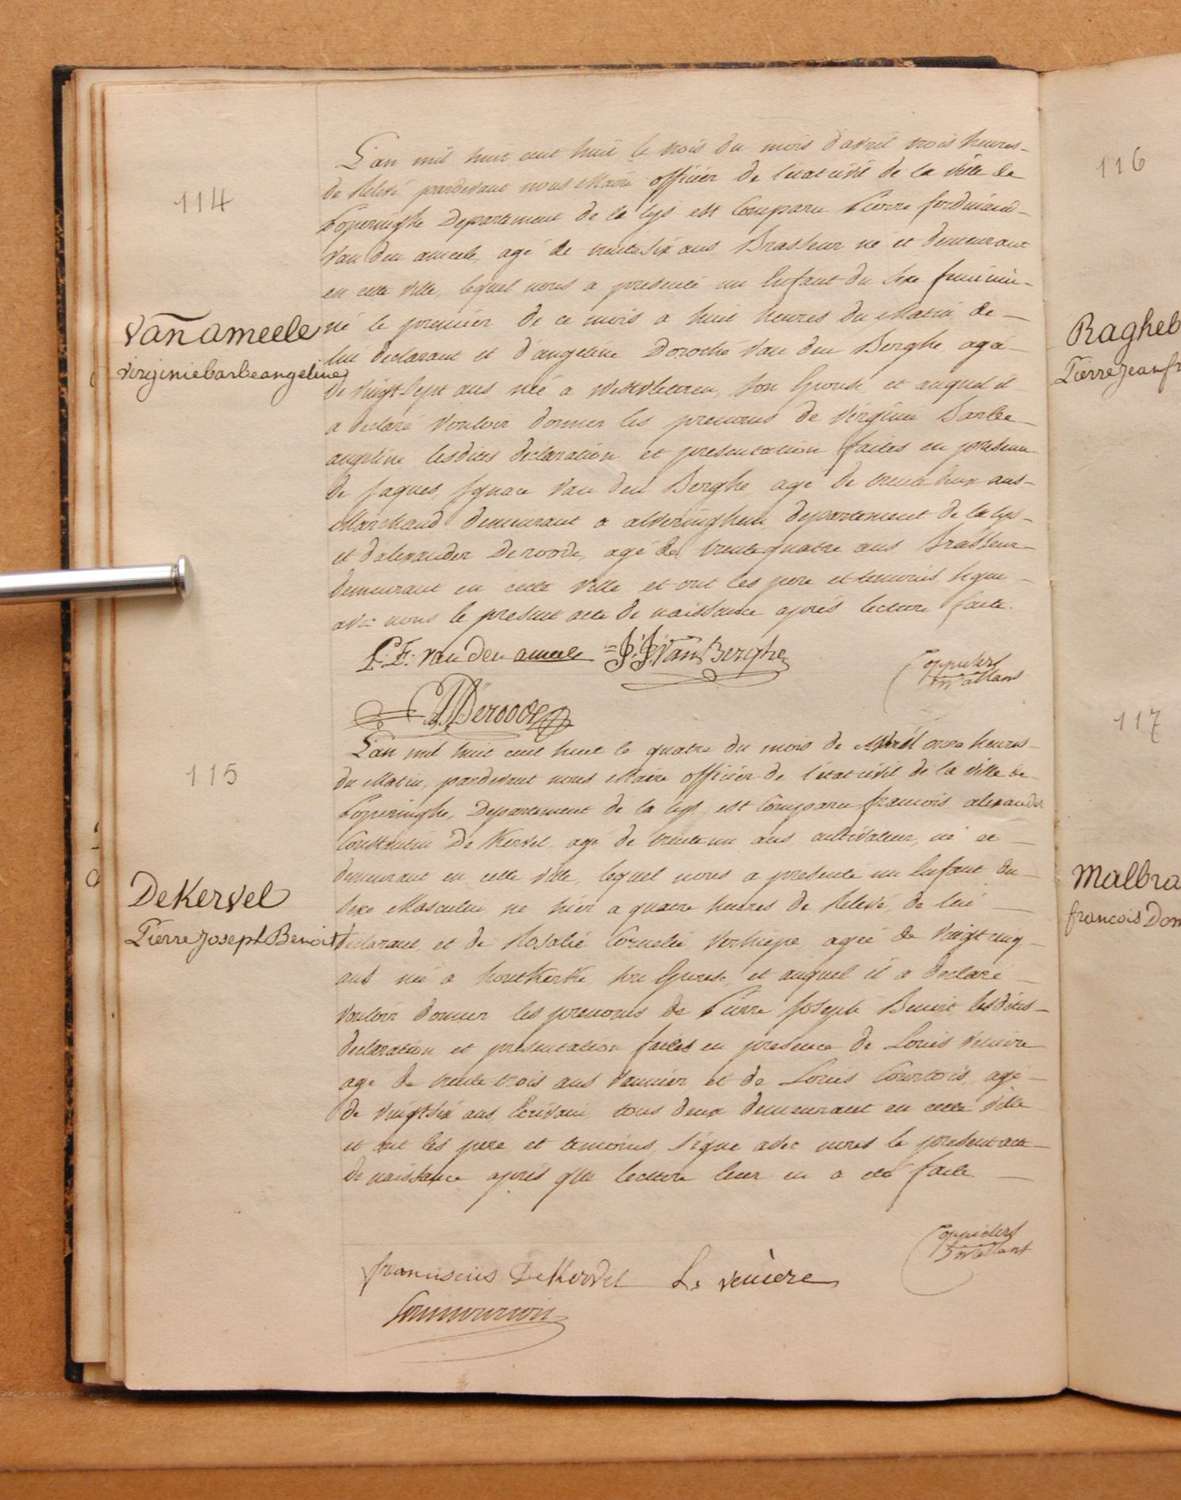 114
Van ameele
Virginie barbe angeline
L'an mil huit cent huit le trois du mois d'avril trois heures
de Relevé pardevant nous Maire officier de l'etat civil de la ville de
Poperinghe Departement de la Lys est Comparu Pierre ferdinand
Van den ameele, agé de trente six ans Brasseur né et demeurant
en cette ville, lequel nous a presenté un Enfant du Sexe feminin
né le premier de ce mois a huit heures du Matin de
lui declarant et d'angeline Dorothé Van den Berghe agée
de vingt Sept ans née a westvleteren, son Epouse et auquel il
a declaré vouloir donner les prenoms de Virginie Barbe
angeline lesdites declaration et presentation faites en presence
de Jaques Ignace Van den Berghe agé de trente deux ans
Marchand demeurant a alveringhem departement de la Lys
et d'alexander Deroode, agé de trente quatre ans Brasseur
demeurant en cette ville et ont les pere et temoins signé
avec nous le present acte de naissance aprés lecture faite.
P: F: van den ameele J: J: Van Berghe
Deroode
115
DeKervel
Pierre Joseph Benoit
L'an mil huit cent huit le quatre du mois de Avril onze heures
du Matin, pardevant nous Maire officier de l'etat civil de la ville de
Poperinghe, Departement de la Lys est Comparu francois alexander
Constantin De Kervel agé de trente un ans cultivateur, né et
demeurant en cette ville, lequel nous a presenté un Enfant du
Sexe Masculin né hier a quatre heures de Relevé, de lui
declarant et de Rosalie Cornelie Verhiepe agée de vingt cinq
ans née a houtkerke, son Epouse, et auquel il a declaré
vouloir donner les prenoms de Pierre Joseph Benoit lesdites
declaration et presentation faites en presence de Louis Veniere
agé de trente trois ans Vannier et de Louis Courtois, agé
de vingt six ans Ecrivain tous deux demeurant en cette ville
et ont les pere et temoins signé avec nous le present acte
de naissance aprés que lecture leur en a été faite
franciscus DeKervel L. veniere
116
Ragheb
Pierre Jean fr
117
Malbra
francois Dom